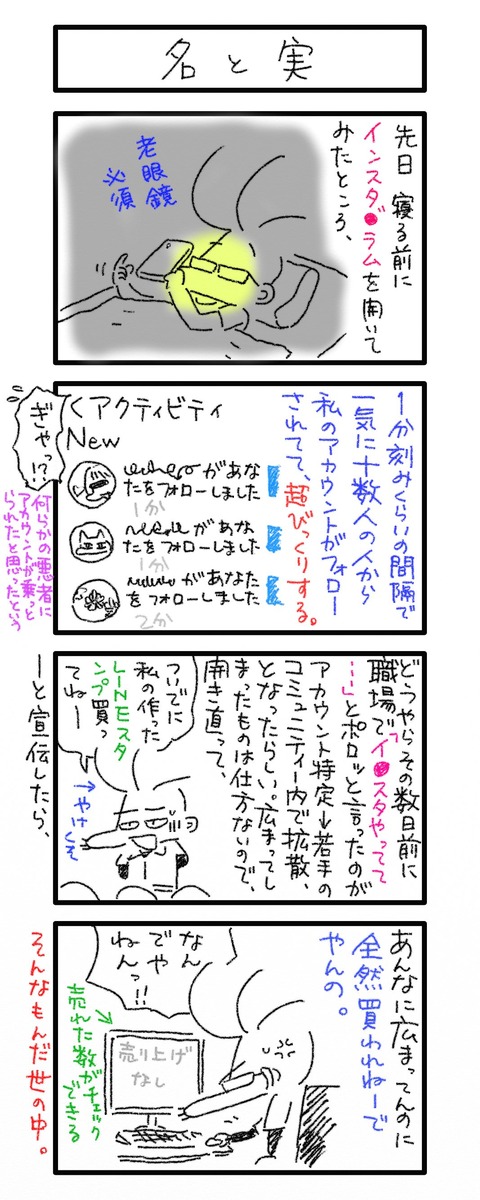 名と実
先日 寝る前に
インスタ●ラムを開いて
みたところ、
老眼鏡
必須
1分刻みくらいの間隔で
一気に十数人の人から
私のアカウントがフォロー
されてて、超びっくりする。
くアクティビティ
New
があな
たをフォローしました
1分
があな
たをフォローしました
1分
があなた
をフォローしました
2分
ぎゃっ!?
何らかの悪者に
アカウントが乗っと
られたと思ったという
どうやらその数日前に
職場で「イ●スタやってて
…」とポロッと言ったのが
アカウント特定→若手の
コミュニティー内で拡散、
となったらしい。広まってし
まったものは仕方ないので、
開き直って、
ついでに
私の作った
LINEスタ
ンプ買っ
てねー
→やけくそ
ーと宣伝したら、
あんなに広まってんのに
全然買われねーで
やんの。
なん
でや
ねんっ!!
売り上げ
なし
→売れた数がチェック
できる
そんなもんだ世の中。